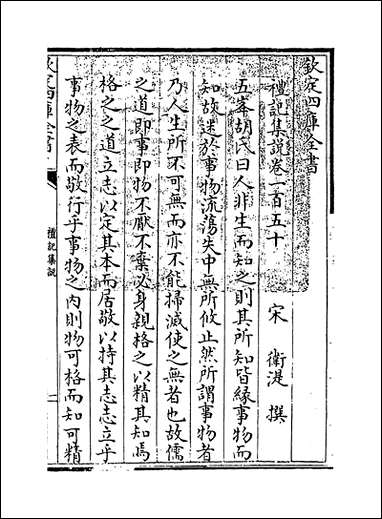 欽定四庫全書
禮記集説卷一百五十
宋 衛湜 撰
五峯胡氏曰人非生而知之則其所知皆緣事物而
知故迷於事物流蕩失中無所攸止然所謂事物者
乃人生所不可無而亦不能掃滅使之無者也故儒
之道即事即物不厭不棄必身親格之以精其知焉
格之之道立志以定其本而居敬以持其志志立乎
事物之表而敬行乎事物之内則物可格而知可精
欽定四庫全書
禮記集説